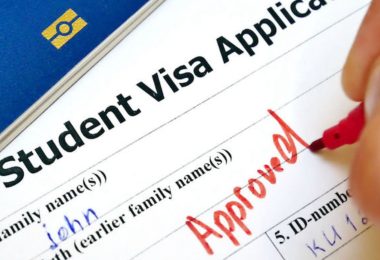 Student Visa Applica
family name(s))
john
th (earlier family name(s))
Approved
5. ID-number
KU1